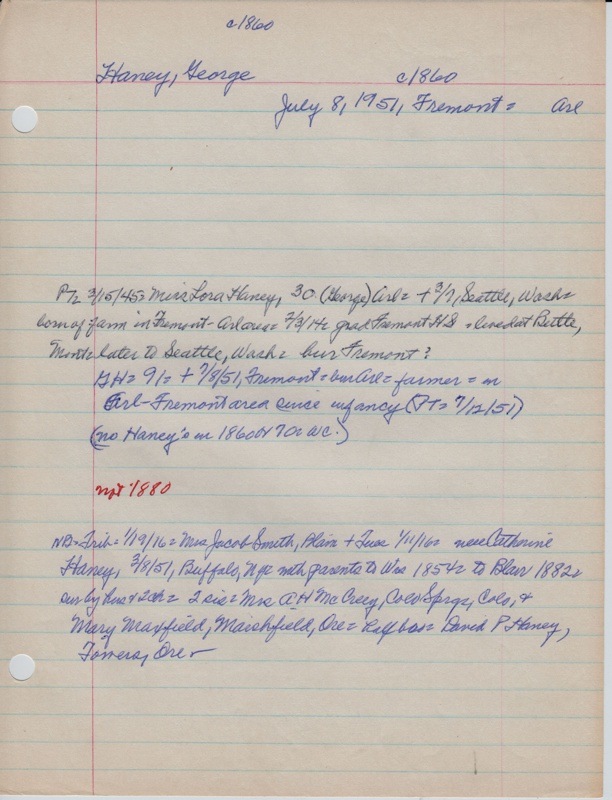 c1860
Haney, George c1860
July 8, 1951, Fremont = Arl
3/15/45 = Miss Lora Haney, 30 (George) Arl = + 3/7, Seattle, Wash =
born of farm in Fremont - Arl area = 7/3/14 = grad Fremont HS = lived at Butte,
Mont = later to Seattle, Wash = bur Fremont?
GH = 91 = + 7/8/51, Fremont = bur Arl = farmer = in
Arl-Fremont area since infancy (PT = 7/12/51)
(no Haney's in 1860 or 70 = WC.)
not 1880
Trib = 1/19/16 = Mrs Jacob Smith, Blair + Tues 1/11/16 = nee Catherine
Haney, 3/8/51, Buffalo, NY = with parents to Wis 1854 = to Blair 1882 =
sur by hus + 2 ch = 2 sis = Mrs A H McCreey, Colo Sprgs, Colo, +
Mary Maxfield, Marshfield, Ore = half bro = David P Haney,
Towers, Ore -